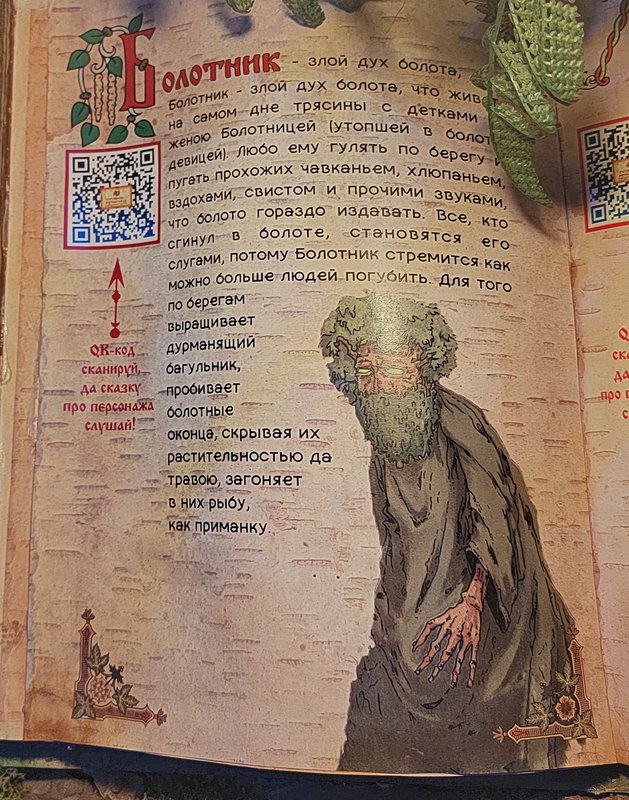 Болотник - злой дух болота,
Болотник - злой дух болота, что живет
на самом дне трясины с детками
женою Болотницей (утопшей в болоте
девицей). Любо ему гулять по берегу и
пугать прохожих чавканьем, хлюпаньем,
вздохами, свистом и прочими звуками,
что болото гораздо издавать. Все, кто
сгинул в болоте, становятся его
слугами, потому Болотник стремится как
можно больше людей погубить. Для того
по берегам
выращивает
дурманящий
багульник,
пробивает
болотные
оконца, скрывая их
растительностью да
травою, загоняет
в них рыбу,
как приманку.
QR-код
сканируй,
да сказку
про персонажа
слушай!